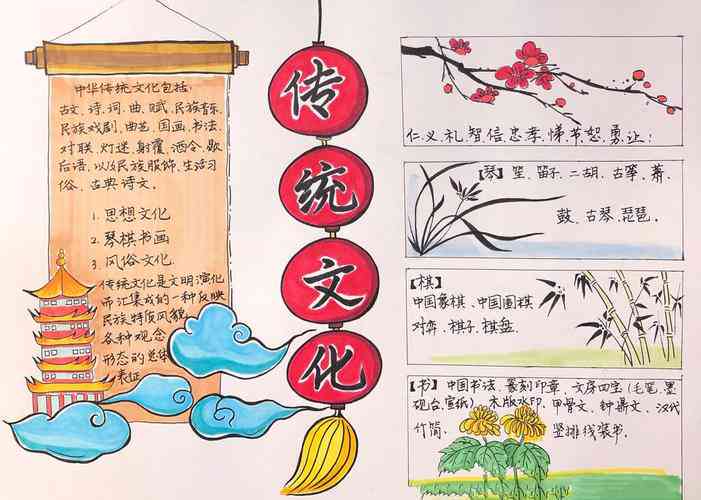 中华传统文化包括:
古文、诗、词、曲、赋、民族音乐、
民族戏剧、曲艺、国画、书法、
对联、灯迷、射覆、酒令、歇
后语、以及民族服饰、生活习
俗、古典诗文。
1. 思想文化
2. 琴棋书画
3. 风俗文化
传统文化是文明演化
而汇集成的一种反映
民族特质风貌
各种观念
形态的总体
表征
传
统
文
化
仁、义、礼、智、信、忠、孝、悌、节、恕、勇、让;
【琴】笙、笛子、二胡、古筝、萧、
鼓、古琴、琵琶。
【棋】
中国象棋、中国围棋
对弈、棋子、棋盘。
【书】中国书法、篆刻印章、文房四宝(毛笔、墨
砚台、宣纸)木版水印、甲骨文、钟鼎文、汉代
竹简、竖排线装书.